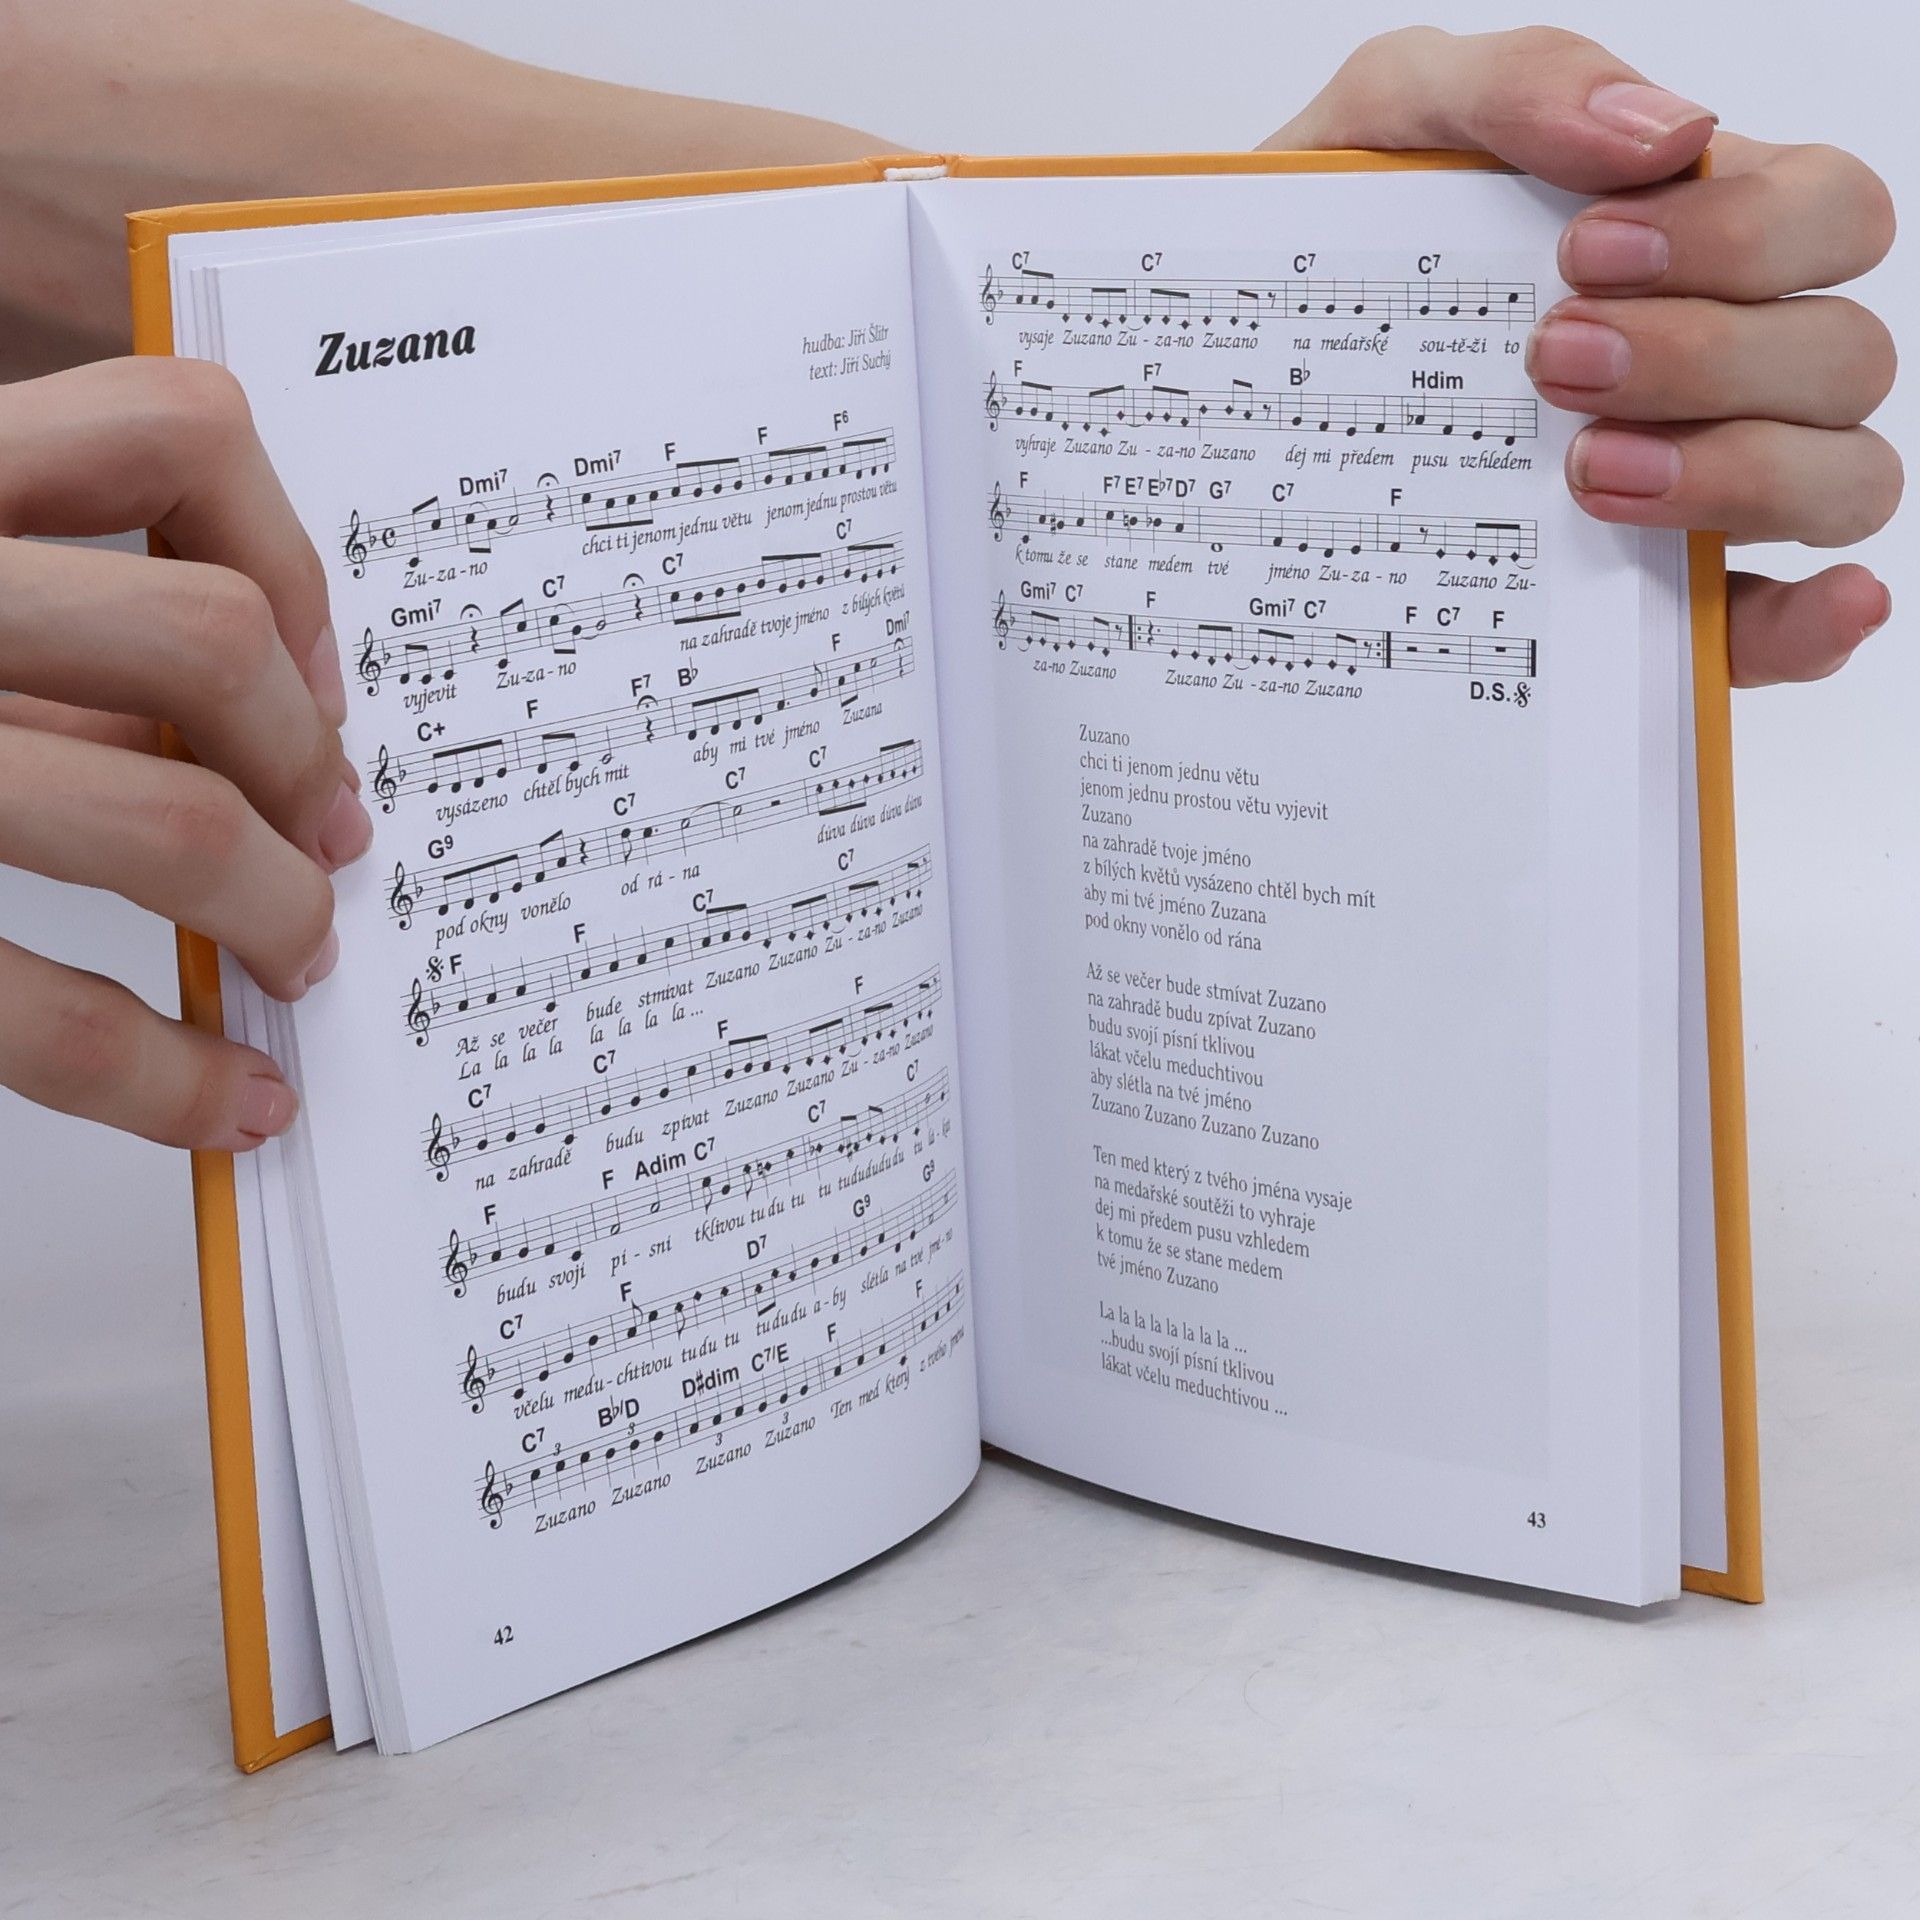 Zuzana
hudba: Jiří Šlitr
text: Jiří Suchý
Dmi7 Dmi7 F F F6
Zu-za-no chci ti jenom jednu větu jenom jednu prostou větu
Gmi7 C7 C7 C7
vyjevit Zu-za-no na zahradě tvoje jméno z bílých květů
C+ F F7 B♭ F Dmi7
vysázeno chtěl bych mít aby mi tvé jméno Zuzana
G9 C7 C7 C7
pod okny vonělo od rá-na dúva dúva dúva dúva
F F C7 C7
Až se večer bude stmívat Zuzano Zuzano Zu-za-no Zuzano
La la la la la la la la ...
C7 C7 F F
na zahradě budu zpívat Zuzano Zuzano Zu-za-no Zuzano
F F Adim C7 C7 C7
budu svojí pí-sní tklivou tu du tu du tu tu tudududu tu lá-kat
C7 F D7 G9 G9
včelu medu-chtivou tu du tu tududu a-by slétla na tvé jmé-no
C7 B♭/D D♯dim C7/E F F
3 3 3 3
Zuzano Zuzano Zuzano Zuzano Ten med který z tvého jména
42
C7 C7 C7 C7
vysaje Zuzano Zu-za-no Zuzano na medařské sou-tě-ži to
F F7 B♭ Hdim
vyhraje Zuzano Zu-za-no Zuzano dej mi předem pusu vzhledem
F F7 E7 E♭7 D7 G7 C7 F
k tomu že se stane medem tvé jméno Zu-za-no Zuzano Zu-
Gmi7 C7 F Gmi7 C7 F C7 F
za-no Zuzano Zuzano Zu-za-no Zuzano
D.S.
Zuzano
chci ti jenom jednu větu
jenom jednu prostou větu vyjevit
Zuzano
na zahradě tvoje jméno
z bílých květů vysázeno chtěl bych mít
aby mi tvé jméno Zuzana
pod okny vonělo od rána
Až se večer bude stmívat Zuzano
na zahradě budu zpívat Zuzano
budu svojí písní tklivou
lákat včelu meduchtivou
aby slétla na tvé jméno
Zuzano Zuzano Zuzano Zuzano
Ten med který z tvého jména vysaje
na medařské soutěži to vyhraje
dej mi předem pusu vzhledem
k tomu že se stane medem
tvé jméno Zuzano
La la la la la la la la ...
...budu svojí písní tklivou
lákat včelu meduchtivou ...
43